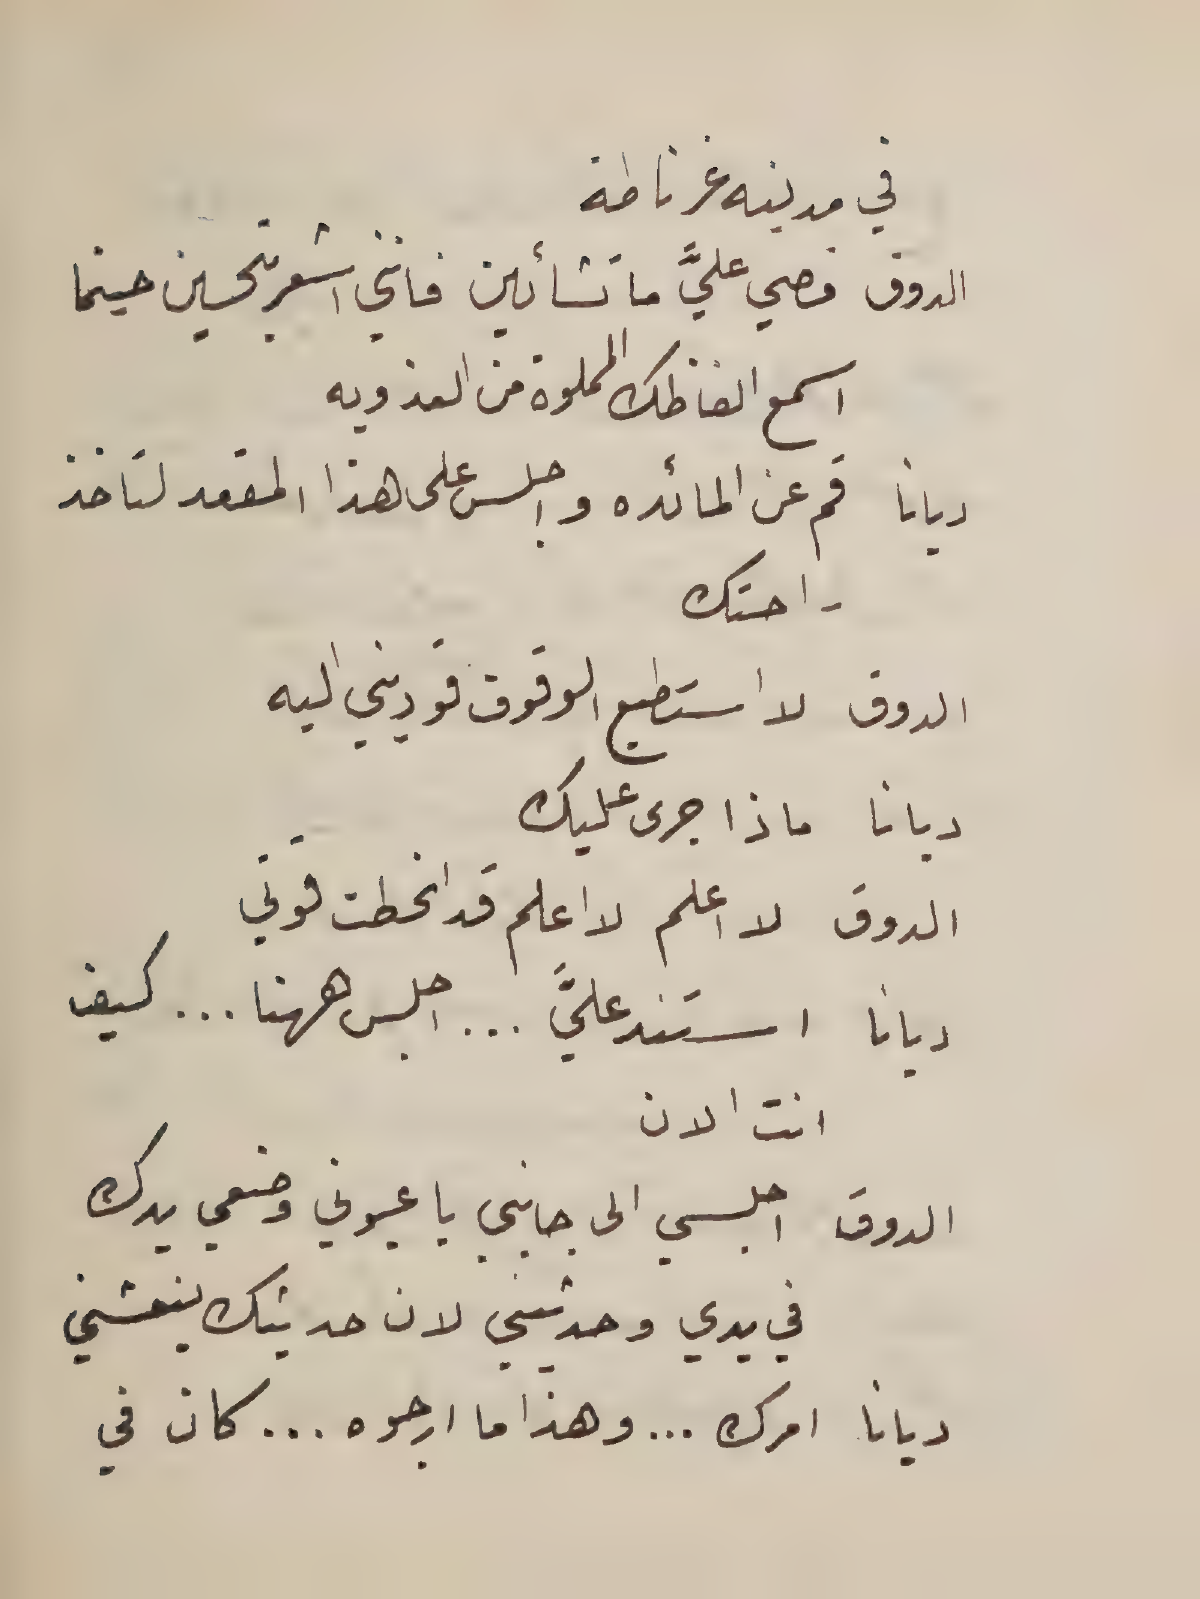 في مدينه غرناطة
الدوق قصي عليَّ ما تشائين فانني اشعر بتحسين حينما
اسمع الفاظك المملوة من العذوبه
ديانا قم عن المائده واجلس على هذا المقعد لتاخذ
راحتك
الدوق لا استطيع الوقوف قوديني اليه
ديانا ماذا جرى عليك
الدوق لا اعلم لا اعلم قد انحطت قوتي
ديانا استند عليَّ ... اجلس ههنا ... كيف
انت الان
الدوق اجلسي الى جانبي يا عيوني وضعي يدك
في يدي وحدثيني لان حديثك ينعشني
ديانا امرك ... وهذا ما ارجوه ... كان في